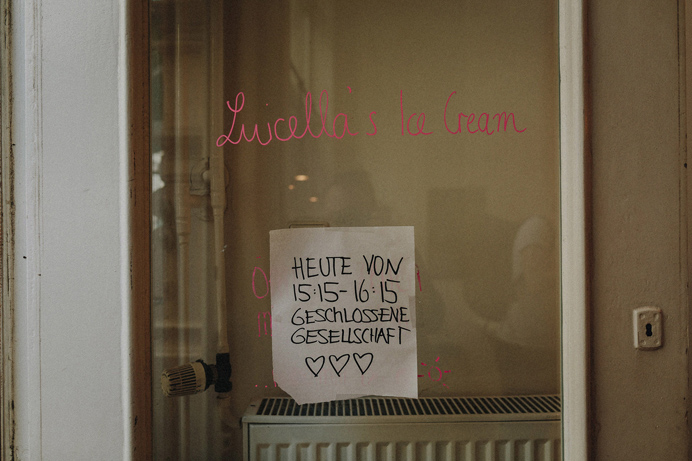 Luicella's Ice Cream
HEUTE VON
15:15-16:15
GESCHLOSSENE
GESELLSCHAFT